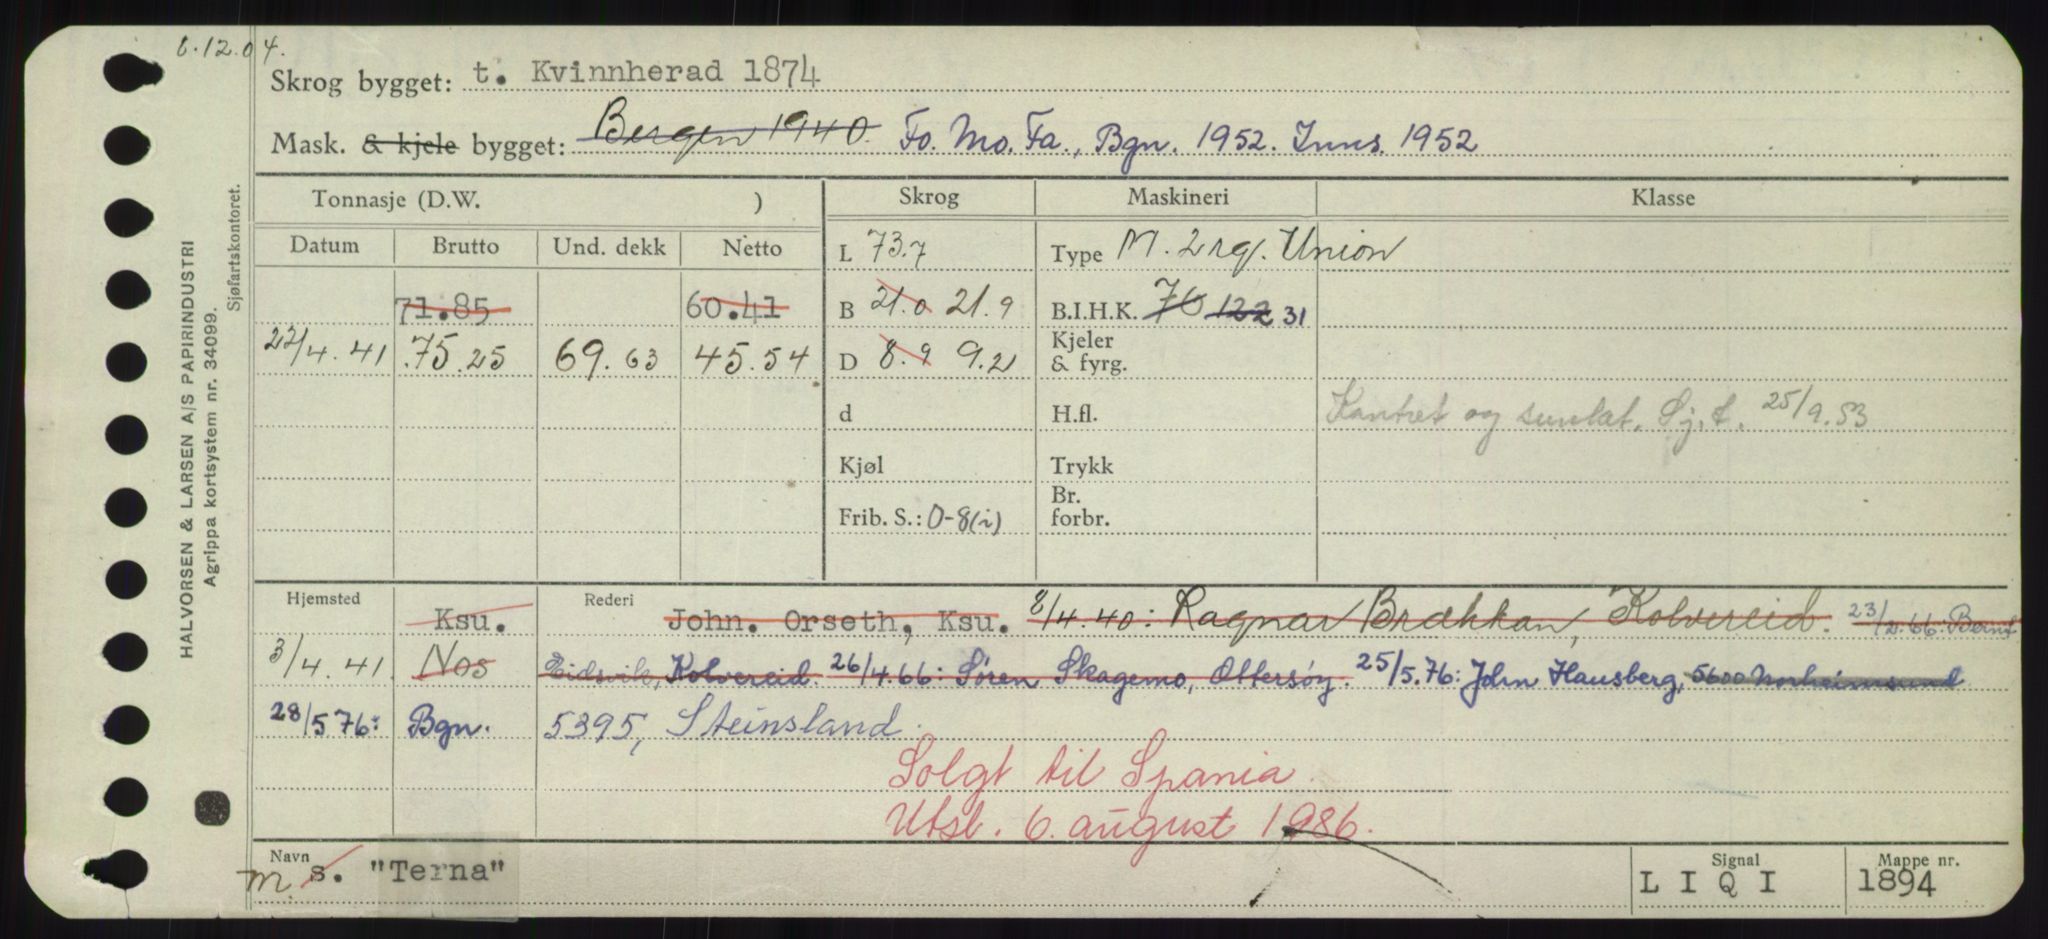 8.12.04.
Skrog bygget: t. Kvinnherad 1874
Mask. & kjele bygget: Bergen 1940. Fo. Mo. Fa., Bgn. 1952. Inns. 1952
Tonnasje (D.W. ) Skrog Maskineri Klasse
Datum Brutto Und. dekk Netto L 73.7 Type M. 2 rg. Union
71.85 60.41 B 21.0 21.9 B.I.H.K. 76 122 31
22/4.41 75.25 69.63 45.54 D 8.9 9.21 Kjeler & fyrg.
d H.fl. Kontret og sunlat. Sj.t. 25/9.53
Kjøl Trykk
Frib. S.: 0-8(i) Br. forbr.
Hjemsted Rederi
Ksu. John. Orseth, Ksu. 8/4.40: Ragnar Brækkan, Kolvereid. 23/2.66: Bernt
3/4.41. Nos Eidsvik, Kolvereid. 26/4.66: Søren Skagemo, Ottersøy. 25/5.76: John Hausberg, 5600 Norheimsund
28/5 76: Bgn. 5395, Steinsland.
Solgt til Spania.
Utsl. 6. august 1986.
Navn Signal Mappe nr.
m s. "Terna" L I Q I 1894
HALVORSEN & LARSEN A/S PAPIRINDUSTRI
Agrippa kortsystem nr. 34099.
Sjøfartskontoret.